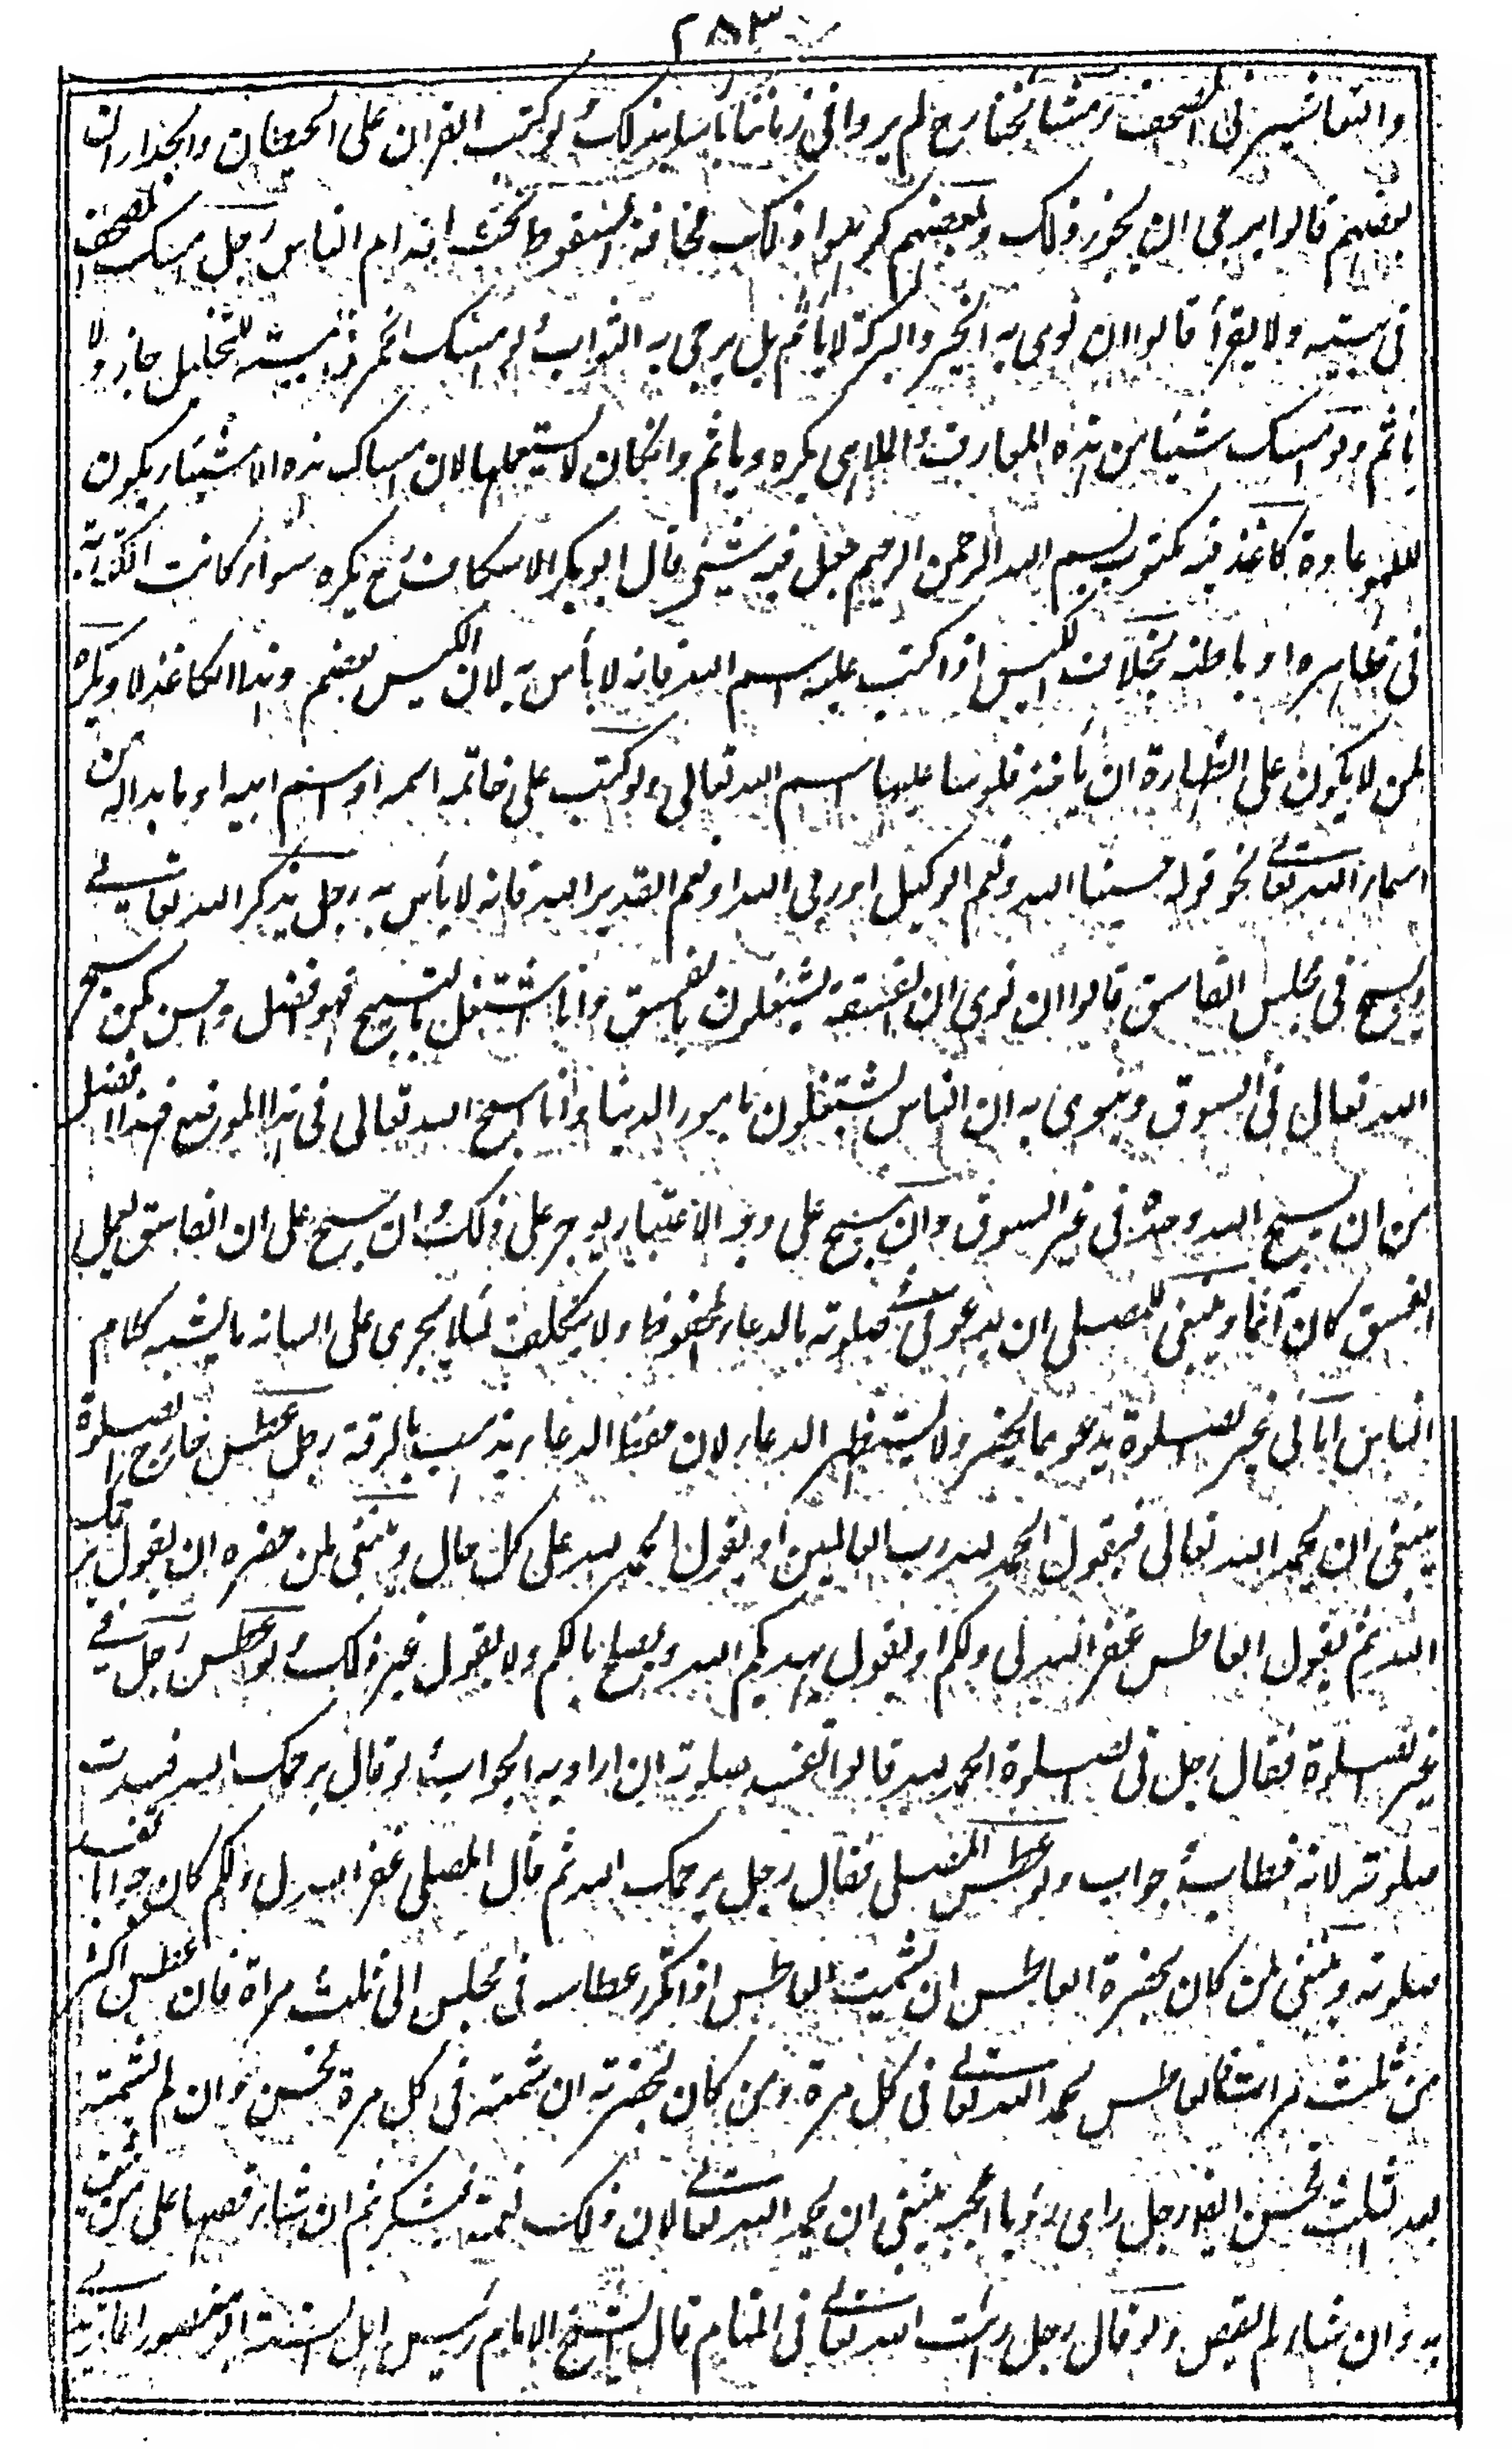 ٢٨٣
والتعاشير في المصحف ومشائخنا رح لم يروا في زماننا بأسا بذلك ولو كتب القران على الحيطان والجدران
بعضهم قالوا يرجى ان يجوز ذلك وبعضهم كرهوا ذلك مخافة السقوط تحت اقدام الناس رجل امسك المصحف
في بيته ولا يقرأ قالوا ان نوى به الخير والبركة لا يأثم بل يرجى به الثواب ولو امسك الخمر في بيته للتخليل جاز ولا
يأثم ولو امسك شيئا من هذه المعازف والملاهي يكره ويأثم وانكان لا يستعملها لان امساك هذه الاشياء يكون
للهو عادة كاغذ فيه مكتوب بسم الله الرحمن الرحيم جعل فيه شيئ قال ابو بكر الاسكاف رح يكره سواء كانت الكتابة
في ظاهره او باطنه بخلاف الكيس اذا كتب عليه اسم الله فانه لا بأس به لان الكيس يعظم وهذا الكاغذ لا ويكره
لمن لا يكون على الطهارة ان يأخذ فلوسا عليها اسم الله تعالى ولو كتب على خاتمه اسمه او اسم ابيه او ما بدا له من
اسماء الله تعالى نحو قوله حسبنا الله ونعم الوكيل او ربي الله او نعم القدير الله فانه لا بأس به رجل يذكر الله تعالى
ويسبح في مجلس الفاسق قالوا ان نوى ان الفسقة يشتغلون بالفسق وانا اشتغل بالتسبيح فهو افضل واحسن كمن سبح
الله تعالى في السوق وينوى به ان الناس يشتغلون بامور الدنيا وانا اسبح الله تعالى في هذا الموضع فهذا افضل
من ان يسبح الله وحده في غير السوق وان سبح على وجه الاعتبار يوجر على ذلك وان سبح على ان الفاسق يعمل
الفسق كان آثما وينبغي للمصلى ان يدعو في صلوته بالدعاء المحفوظ ولا يتكلف لئلا يجرى على لسانه ما يشبه كلام
الناس اما في غير الصلوة يدعو بما يحضر ولا يستظهر الدعاء لان حفظ الدعاء يذهب بالرقة رجل عطس خارج الصلوة
ينبغي ان يحمد الله تعالى فيقول الحمد لله رب العالمين او يقول الحمد لله على كل حال وينبغي لمن حضره ان يقول يرحمك
الله ثم يقول العاطس غفر الله لي ولكم او يقول يهديكم الله ويصلح بالكم ولا يقول غير ذلك ولو عطس رجل في
غير الصلوة فقال رجل في الصلوة الحمد لله قالوا تفسد صلوته ان اراد به الجواب ولو قال يرحمك الله فسدت
صلوته لانه خطاب وجواب ولو عطس المصلى فقال رجل يرحمك الله ثم قال المصلى غفر الله لي ولكم كان جوابا تفسد
صلوته وينبغي لمن كان بحضرة العاطس ان يشمت العاطس اذا تكرر عطاسه في مجلس الى ثلث مراة فان عطس اكثر
من ثلث مرات فالعاطس يحمد الله تعالى في كل مرة ومن كان بحضرته ان شمته في كل مرة يحسن وان لم يشمته
بعد ثلث يحسن ايضا رجل راى رؤيا اعجبه ينبغي ان يحمد الله تعالى لان ذلك نعمة فيشكر ثم ان شاء قصها على من يثق
به وان شاء لم يقص ولو قال رجل رأيت الله تعالى في المنام قال الشيخ الامام رئيس اهل السنة ابو منصور الماتريدي